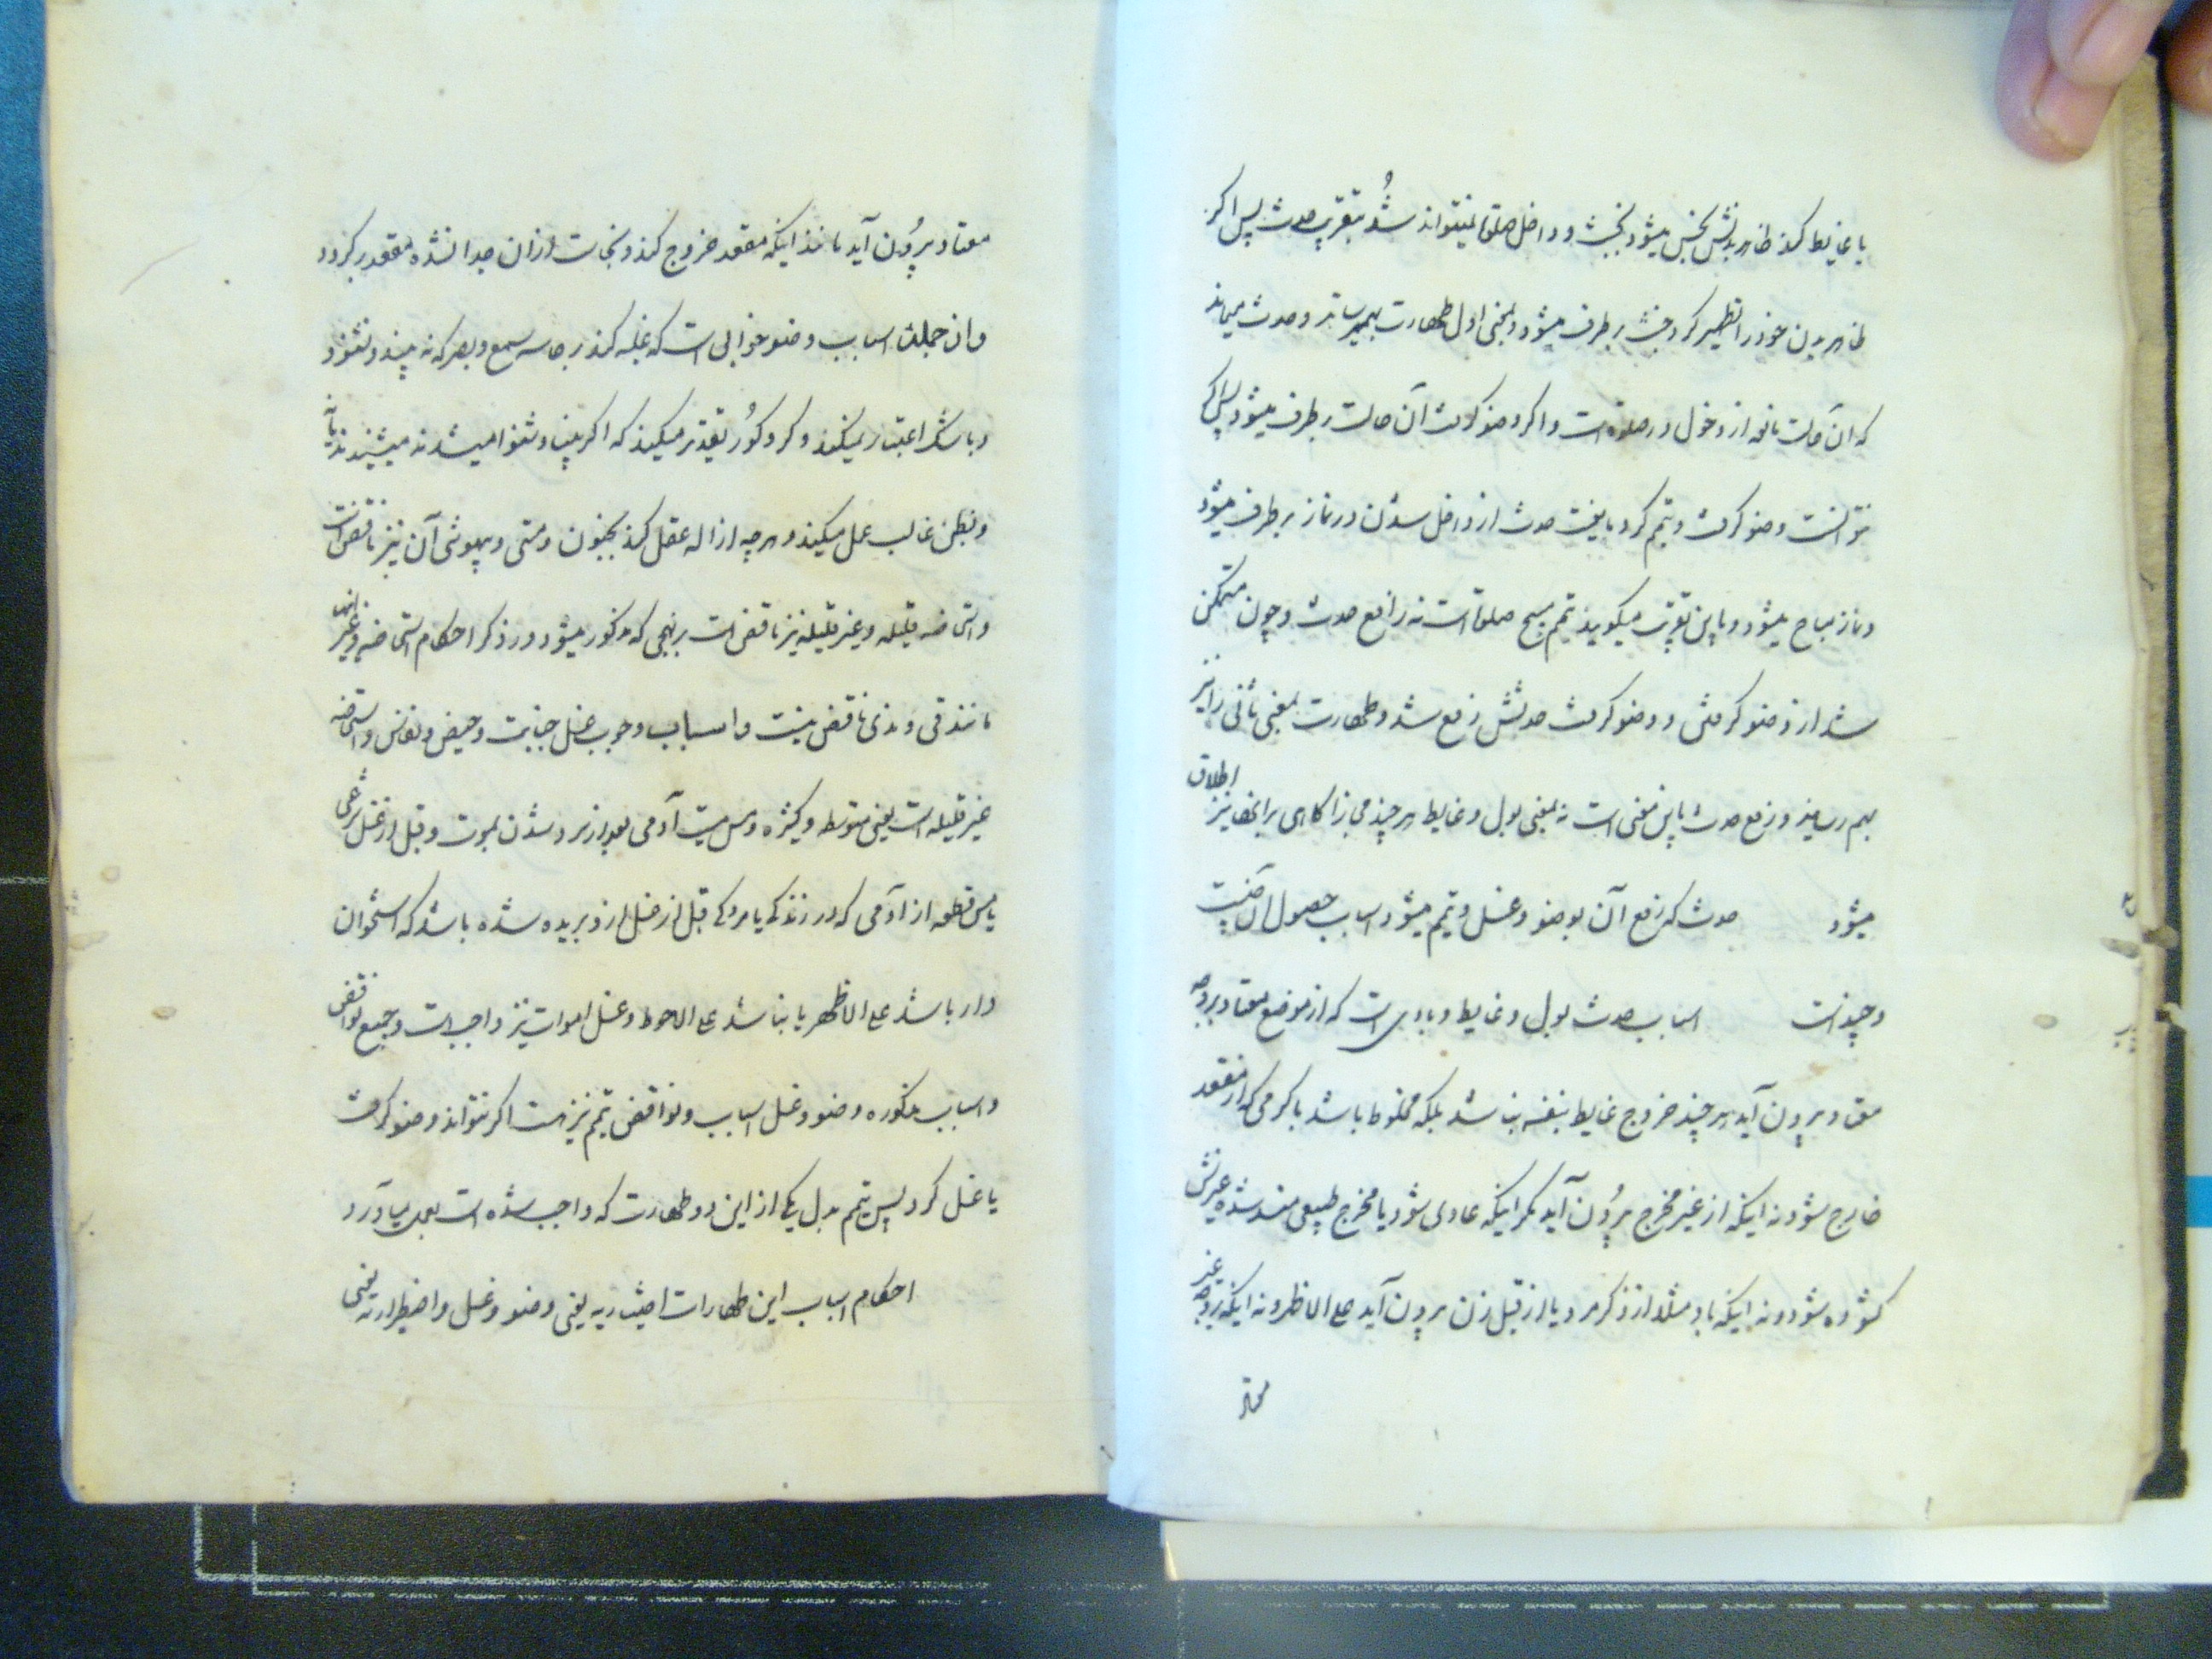 یا غایط کند ظاهر بدنش نجس میشود بخبث و داخل صلوة نمیتواند شد بتقریب حدث پس اگر
ظاهر بدن خود را تطهیر کرد خبث برطرف میشود و بمعنی اول طهارت بهم میرساند و حدث میماند
که آن حالت مانعه از دخول در صلوة است و اگر وضو گرفت آن حالت برطرف میشود پس اگر
نتوانست وضو گرفت و تیمم کرد مانعیت حدث از داخل شدن در نماز برطرف میشود
و نماز مباح میشود و باین تقریب میگویند تیمم مبیح صلوة است نه رافع حدث و چون متمکن
شد از وضو گرفتن و وضو گرفت حدثش رفع شد و طهارت بمعنی ثانی را نیز
بهم رسانید و رفع حدث باین معنی است نه بمعنی بول و غایط هر چند مجازا گاهی بر اینها نیز اطلاق
میشود حدث که رفع آن بوضو و غسل و تیمم میشود اسباب حصول آن چیست
و چند است اسباب حدث بول و غایط و بادی است که از موضع معتاد بر وجه
معتاد بیرون آید هر چند خروج غایط بنفسه نباشد بلکه مخلوط باشد با کرمی که از مقعد
خارج شود نه اینکه از غیر مخرج بیرون آید مگر اینکه عادی شود یا مخرج طبیعی منسد شده غیرش
گشوده شود و نه اینکه باد مثلا از ذکر مرد یا از قبل زن بیرون آید علی الاظهر و نه اینکه بر وجه غیر
معتاد
معتاد بیرون آید مانند اینکه مقعد خروج کند و نجاست از آن جدا نشده بمقعد برگردد
و از جمله اسباب وضو خوابی است که غلبه کند بر حاسه سمع و بصر که نه بیند و نشنود
و با شک اعتبار نمیکنند و کر و کور تقدیر میکنند که اگر بینا و شنوا میشدند میشنیدند یا نه
و بظن غالب عمل میکنند و هر چه ازاله عقل کند بجنون و مستی و بیهوشی آن نیز ناقض است
و استحاضه قلیله و غیر قلیله نیز ناقض است بر نهجی که مذکور میشود در ذکر احکام استحاضه و غیر اینها
مانند قی و مذی ناقض نیست و اسباب وجوب غسل جنابت و حیض و نفاس و استحاضه
غیر قلیله است یعنی متوسطه و کثیره و مس میت آدمی بعد از سرد شدن بموت و قبل از غسل شرعی
یا مس قطعه از آدمی که در زندگی یا مردگی قبل از غسل از او بریده شده باشد که استخوان
دار باشد علی الاظهر یا نباشد علی الاحوط و غسل اموات نیز واجبست و جمیع نواقض
و اسباب مذکوره وضو و غسل اسباب و نواقض تیمم نیز هست اگر نتواند وضو گرفت
یا غسل کرد پس تیمم بدل یکی از این دو طهارت که واجب شده است بعمل بیاورد
احکام اسباب این طهارات اختیاریه یعنی وضو و غسل و اضطراریه یعنی